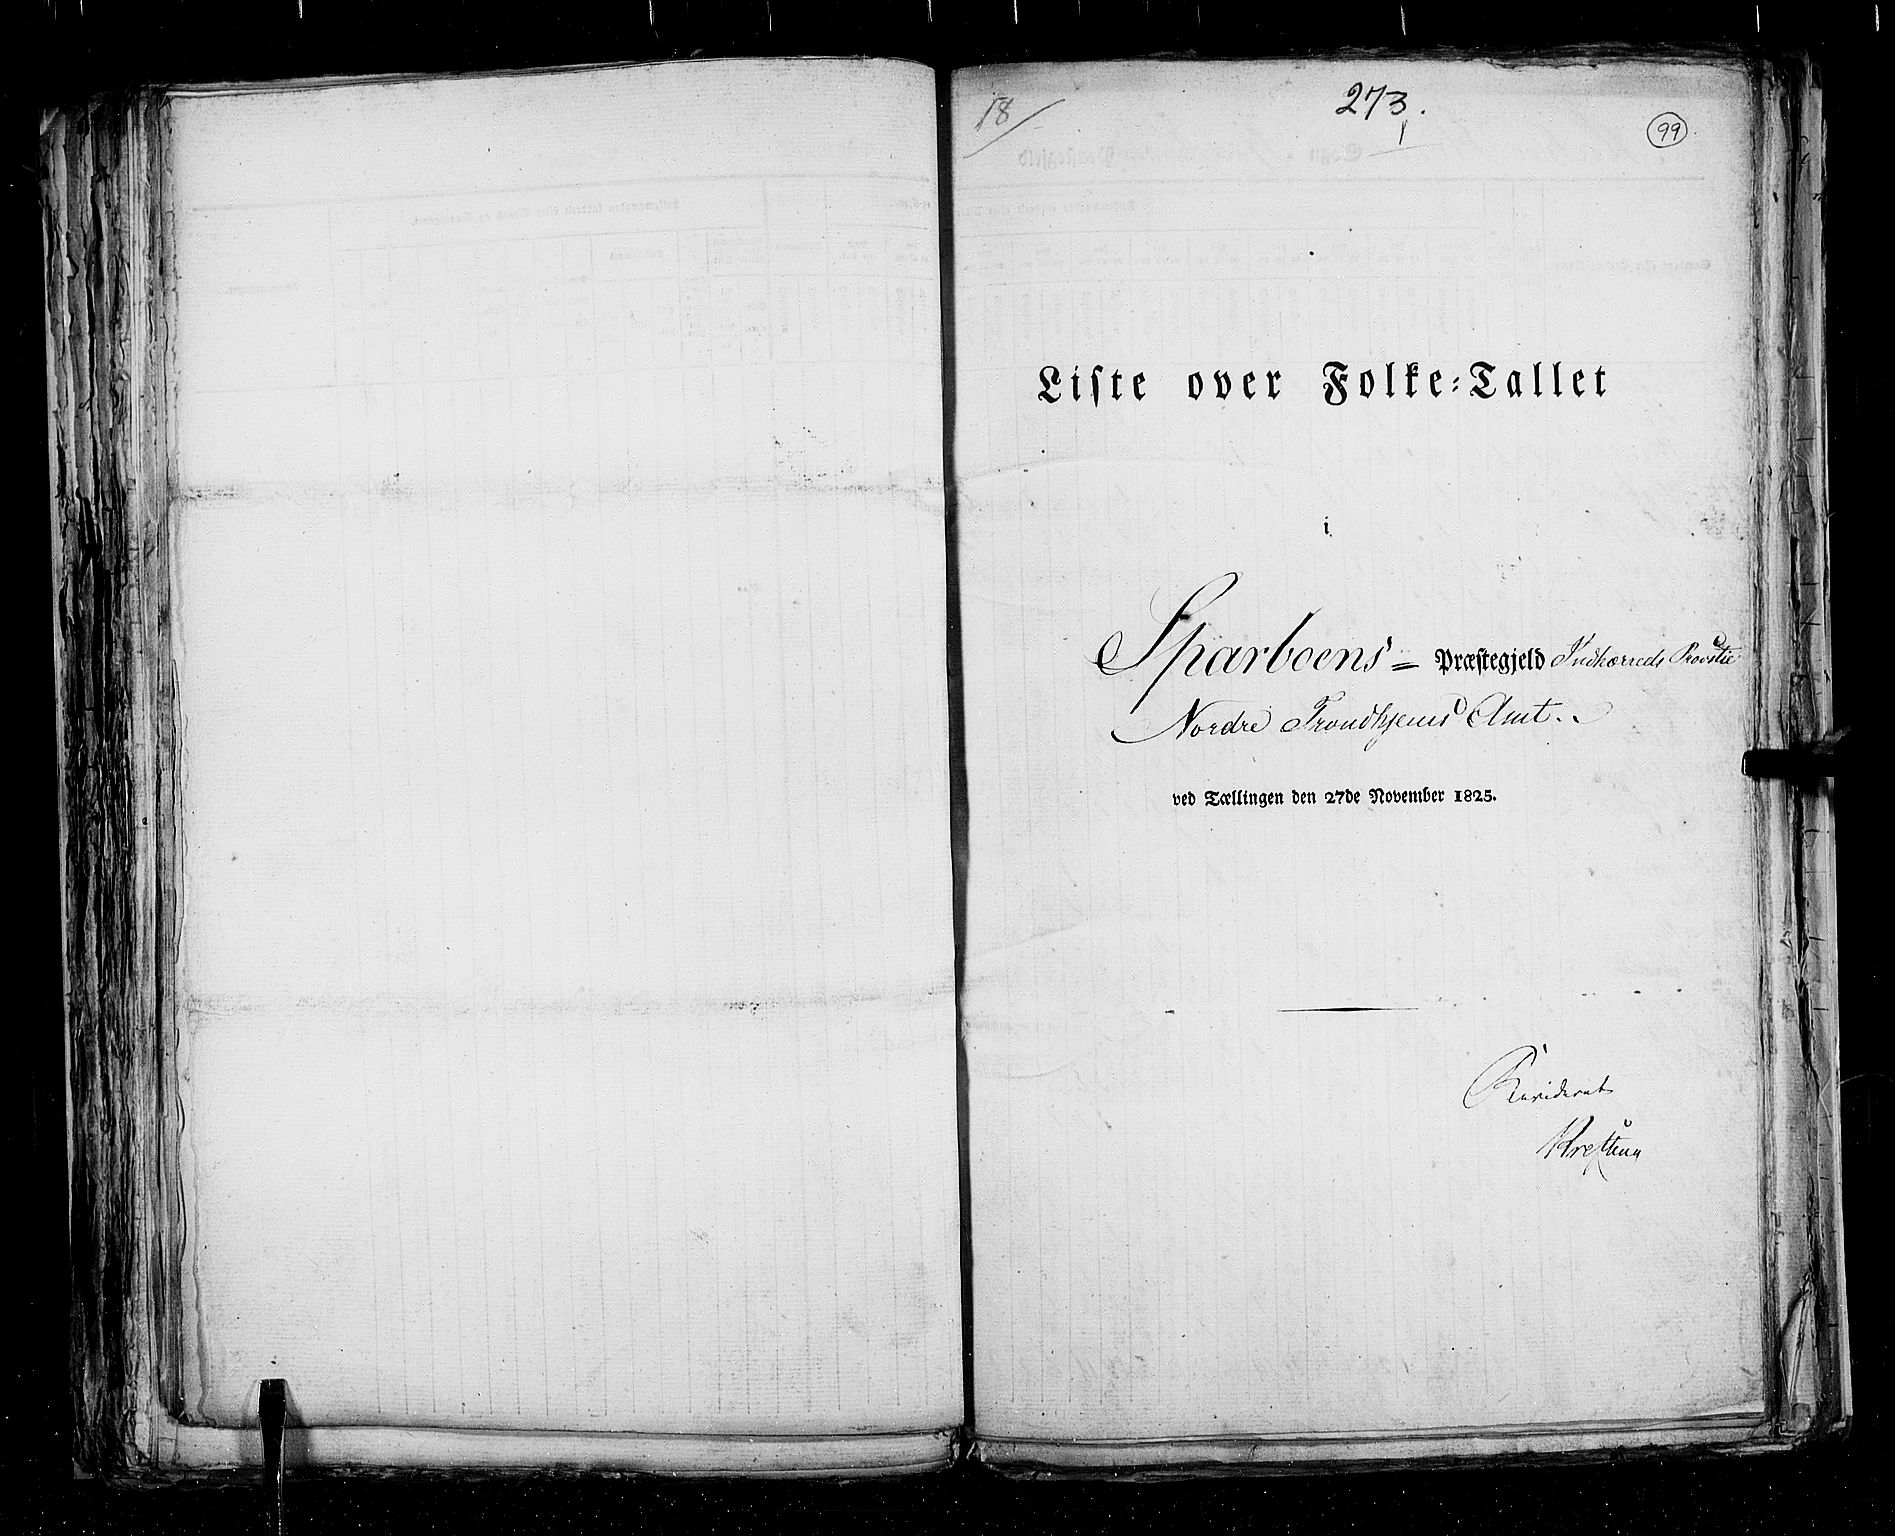 18/
273.
1
99
Liste over Folke-Tallet
i
Sparboens = Præstegjeld Indherreds Provstie
Nordre Trondhjems Amt..
ved Tællingen den 27de November 1825.
Revideret